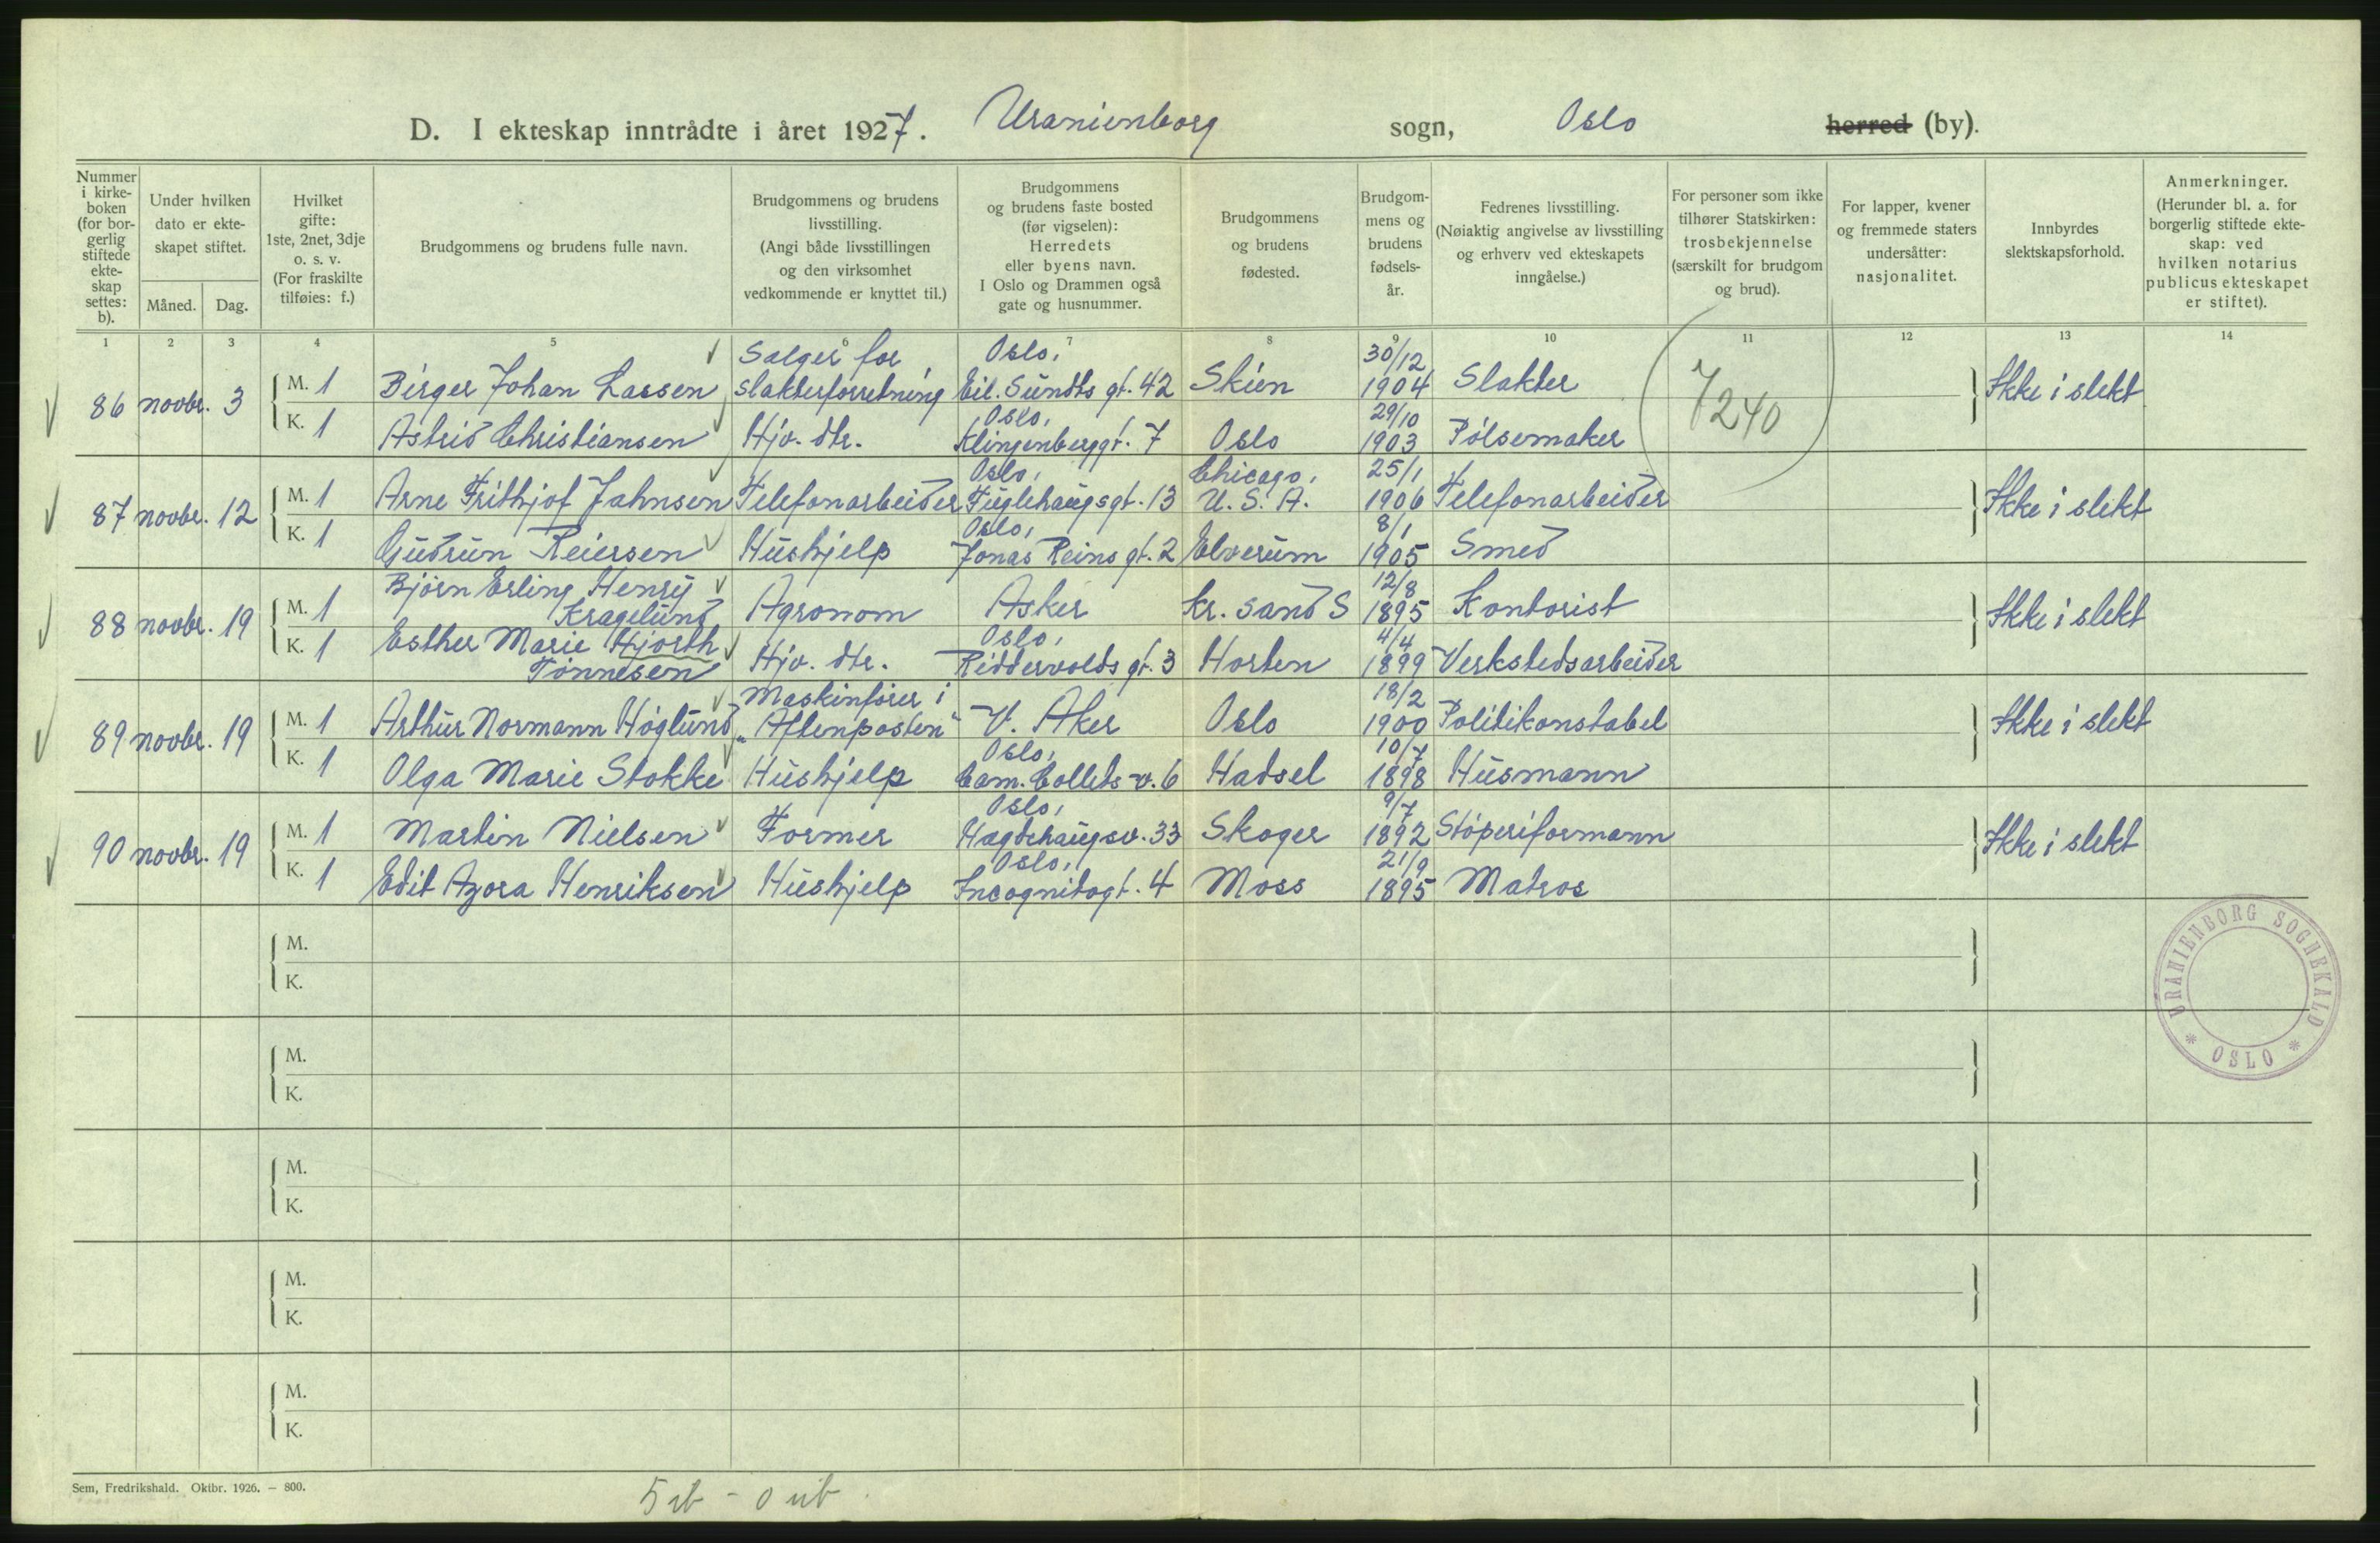 D. I ekteskap inntrådte i året 1927. Uranienborg sogn, Oslo herred (by).
Nummer i kirke-boken (for bor-gerlig stiftede ekte-skap settes: b).
Under hvilken dato er ekte-skapet stiftet.
Måned. Dag.
Hvilket gifte: 1ste, 2net, 3dje o. s. v. (For fraskilte tilføies: f.)
Brudgommens og brudens fulle navn.
Brudgommens og brudens livsstilling. (Angi både livsstillingen og den virksomhet vedkommende er knyttet til.)
Brudgommens og brudens faste bosted (før vigselen): Herredets eller byens navn. I Oslo og Drammen også gate og husnummer.
Brudgommens og brudens fødested.
Brudgom-mens og brudens fødsels-år.
Fedrenes livsstilling. (Nøiaktig angivelse av livsstilling og erhverv ved ekteskapets inngåelse.)
For personer som ikke tilhører Statskirken: trosbekjennelse (særskilt for brudgom og brud).
For lapper, kvener og fremmede staters undersåtter: nasjonalitet.
Innbyrdes slektskapsforhold.
Anmerkninger. (Herunder bl. a. for borgerlig stiftede ekte-skap: ved hvilken notarius publicus ekteskapet er stiftet).
1 2 3 4 5 6 7 8 9 10 11 12 13 14
86 novbr. 3 M. 1 Birger Johan Lassen Selger for slakterforretning Oslo, Eil. Sundts gt. 42 Skien 30/12 1904 Slakter 7240 Ikke i slekt
K. 1 Astrid Christiansen Hjv. dtr. Oslo, Klingenberggt. 7 Oslo 29/10 1903 Pölsemaker
87 novbr. 12 M. 1 Arne Frithjof Jahnsen Telefonarbeider Oslo, Fuglehaugsgt. 13 Chicago, U. S. A. 25/1 1906 Telefonarbeider Ikke i slekt
K. 1 Gudrun Reiersen Hushjelp Oslo, Jonas Reins gt. 2 Elverum 8/1 1905 Smed
88 novbr. 19 M. 1 Björn Erling Henry Kragelund Agronom Asker Kr. sand S 12/8 1895 Kontorist Ikke i slekt
K. 1 Esther Marie Hjorth Tönnesen Hjv. dtr. Oslo, Riddervolds gt. 3 Horten 4/4 1899 Verkstedsarbeider
89 novbr. 19 M. 1 Arthur Normann Höglund Maskinförer i „Aftenposten" V. Aker Oslo 18/2 1900 Politikonstabel Ikke i slekt
K. 1 Olga Marie Stokke Hushjelp Oslo, Cam. Colletts v. 6 Hadsel 10/7 1898 Husmann
90 novbr. 19 M. 1 Martin Nielsen Former Oslo, Hegdehaugsv. 33 Skoger 9/7 1892 Stöperiformann Ikke i slekt
K. 1 Edit Azora Henriksen Hushjelp Oslo, Incognitogt. 4 Moss 21/9 1895 Matros
M.
K.
M.
K.
M.
K.
M.
K.
M.
K.
URANIENBORG SOGNEKALD * OSLO *
Sem, Fredrikshald. Oktbr. 1926. – 800.
5 ib - 0 uib